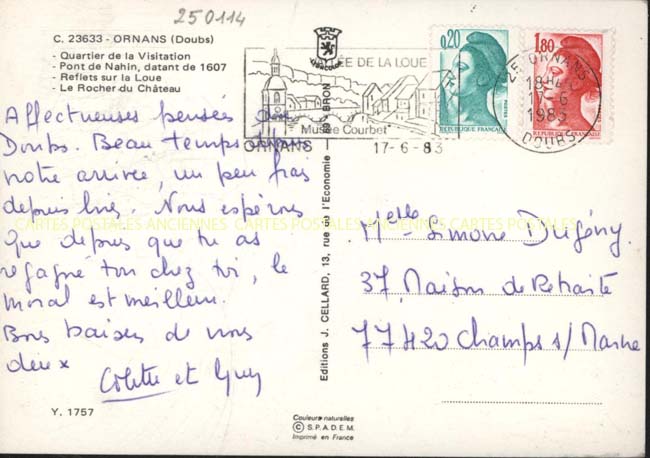 250114
C. 23633 - ORNANS (Doubs)
- Quartier de la Visitation
- Pont de Nahin, datant de 1607
- Reflets sur la Loue
- Le Rocher du Château
ÉE DE LA LOUE
Musée Courbet
ORNANS 17-6-83
0,20
RÉPUBLIQUE FRANÇAISE
1,80
RÉPUBLIQUE FRANÇAISE
ORNANS
18H
17-6
1983
DOUBS
Affectueuses pensées du
Doubs. Beau temps
notre arrivée, un peu frais
depuis hier. Nous espérons
que depuis que tu as
regagné ton chez toi, le
moral est meilleur.
Bons baisers de nous
deux
Colette et Guy
CARTES POSTALES ANCIENNES CARTES POSTALES ANCIENNES
Melle Simone Dugény
37, Maison de Retraite
77420 Champs s/ Marne
Editions J. CELLARD, 13, rue de l'Economie - 69 - BRON
Y. 1757
Couleurs naturelles
© S.P.A.D.E.M.
Imprimé en France